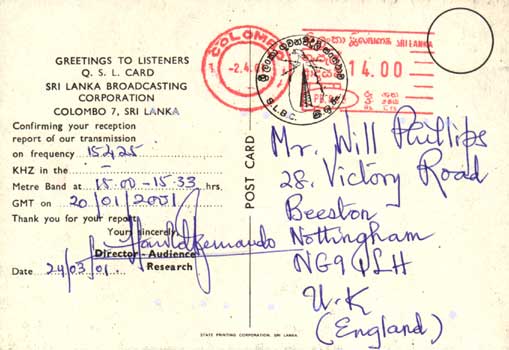 GREETINGS TO LISTENERS
Q. S. L. CARD
SRI LANKA BROADCASTING
CORPORATION
COLOMBO 7, SRI LANKA
Confirming your reception
report of our transmission
on frequency 15425
KHZ in the –
Metre Band at 15.00 – 15.33 hrs.
GMT on 20/01/2001
Thank you for your report
Yours sincerely,
Harold Fernando
Director - Audience
Research
Date 24/03/01
POST CARD
COLOMBO
-2.4.
ශ්‍රී ලංකා ගුවන්විදුලි සංස්ථාව
S.L.B.C.
ශ්‍රී ලංකා இலங்கை SRI LANKA
14.00
Mr. Will Phillips
28, Victory Road
Beeston
Nottingham
NG9 1LH
U.K
(England)
STATE PRINTING CORPORATION, SRI LANKA